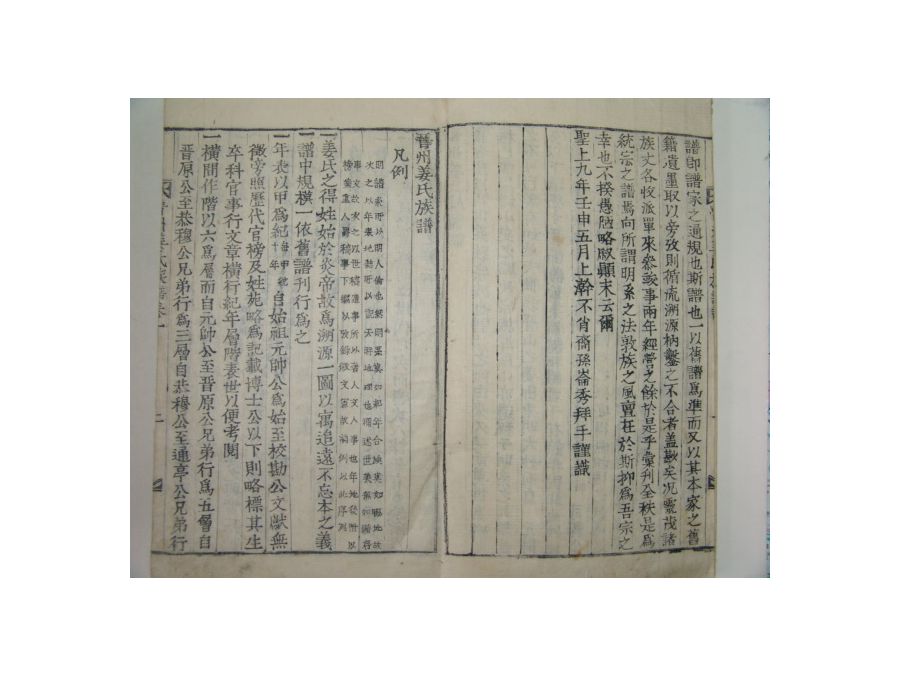 譜印譜家之通規也斯譜也一以舊譜爲準而又以其本家之舊
籍遺墨取以旁攷則循流溯源枘鑿之不合者盖尠矣况靈茂諸
族丈各收派單來參竣事兩年經營之餘於是乎彙刊全秩是爲
統宗之譜焉向所謂明系之法敦族之風亶在於斯抑爲吾宗之
幸也不揆愚陋略叙顚末云爾
聖上九年壬申五月上澣不肖裔孫崙秀拜手謹識
晉州姜氏族譜
凡例
一姜氏之得姓始於炎帝故爲溯源一圖以寓追遠不忘本之義
一譜中規模一依舊譜刊行爲之
一年表以甲爲紀每甲十年自始祖元帥公爲始至校勘公文獻無
徵旁照歷代官榜及姓苑略爲記載博士公以下則略標其生
卒科官事行文章橫行紀年層階表世以便考閱
一橫間作階以六爲層而自元帥公至晉原公兄弟行爲五層自
晉原公至恭穆公兄弟行爲三層自恭穆公至通亭公兄弟行